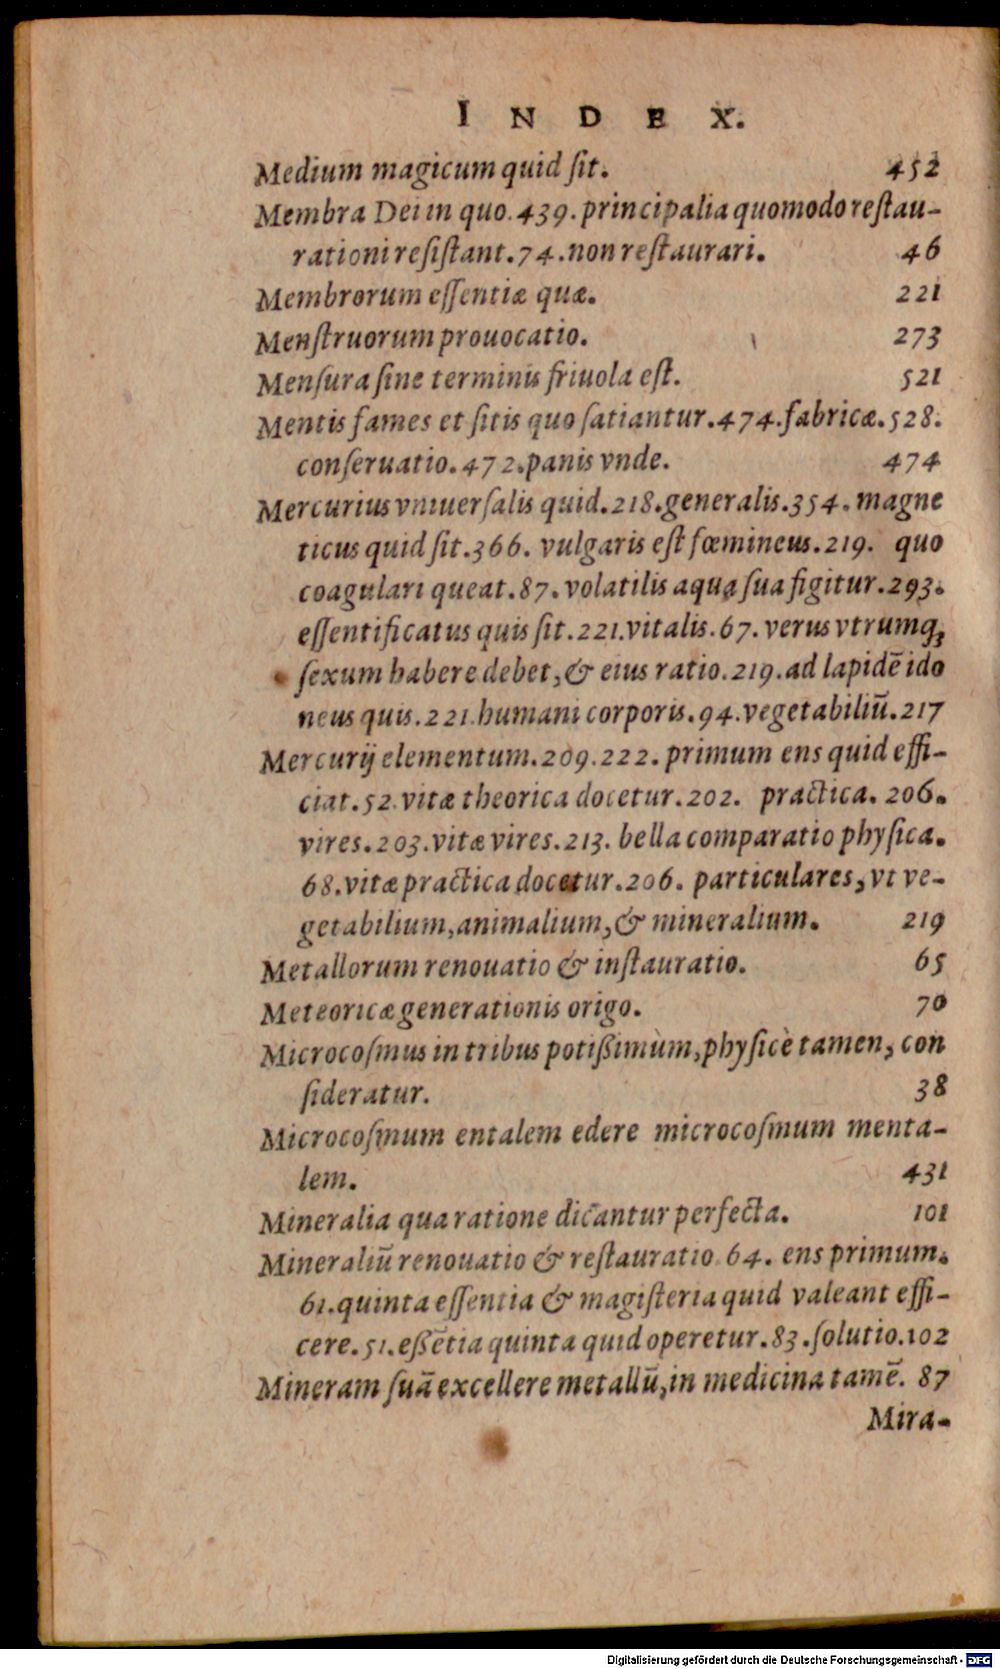 INDEX.
Medium magicum quid ſit. 452
Membra Dei in quo. 439. principalia quomodo reſtau-
rationi reſiſtant. 74. non reſtaurari. 46
Membrorum eſſentiæ quæ. 221
Menſtruorum prouocatio. 273
Menſura ſine terminis friuola eſt. 521
Mentis fames et ſitis quo ſatiantur. 474. fabricæ. 528.
conſeruatio. 472. panis vnde. 474
Mercurius vniuerſalis quid. 218. generalis. 354. magne
ticus quid ſit. 366. vulgaris eſt fœmineus. 219. quo
coagulari queat. 87. volatilis aqua ſua figitur. 293.
eſſentificatus quis ſit. 221. vitalis. 67. verus vtrumq;
ſexum habere debet, & eius ratio. 219. ad lapidē ido
neus quis. 221. humani corporis. 94. vegetabiliū. 217
Mercurij elementum. 209. 222. primum ens quid effi-
ciat. 52. vitæ theorica docetur. 202. practica. 206.
vires. 203. vitæ vires. 213. bella comparatio phyſica.
68. vitæ practica docetur. 206. particulares, vt ve-
getabilium, animalium, & mineralium. 219
Metallorum renouatio & inſtauratio. 65
Meteoricæ generationis origo. 70
Microcoſmus in tribus potißimùm, phyſicè tamen, con
ſideratur. 38
Microcoſmum entalem edere microcoſmum menta-
lem. 431
Mineralia qua ratione dicantur perfecta. 101
Mineraliū renouatio & reſtauratio. 64. ens primum.
61. quinta eſſentia & magiſteria quid valeant effi-
cere. 51. eßētia quinta quid operetur. 83. ſolutio. 102
Mineram ſuā excellere metallū, in medicina tamē. 87
Mira-
Digitalisierung gefördert durch die Deutsche Forschungsgemeinschaft - DFG